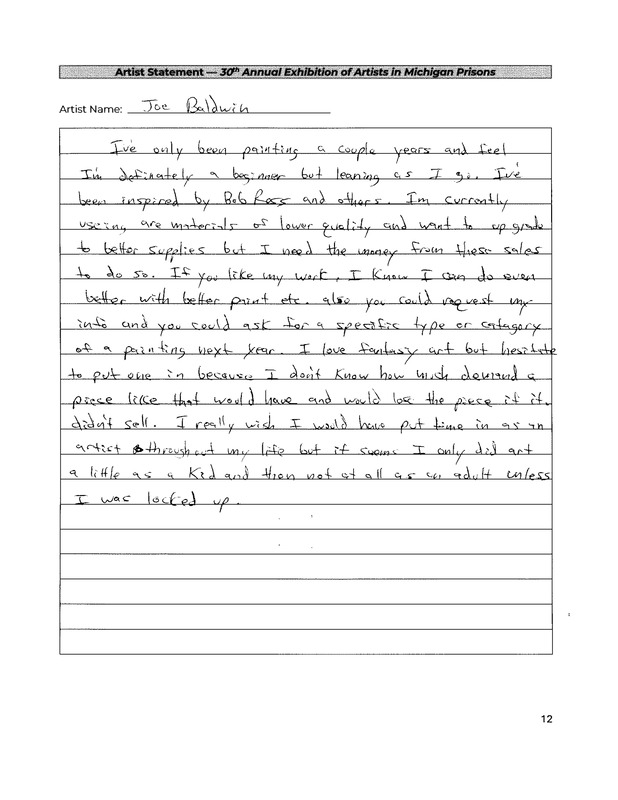 Artist Statement — 30th Annual Exhibition of Artists in Michigan Prisons
Artist Name: Joe Baldwin
I've only been painting a couple years and feel
I'm definately a beginner but leaning as I go. I've
been inspired by Bob Ross and others. I'm currently
useing are materials of lower quality and want to up grade
to better supplies but I need the money from these sales
to do so. If you like my work, I know I can do even
better with better print etc. also you could request my
info and you could ask for a specific type or catagory
of a painting next year. I love fantasy art but hesitate
to put one in because I don't know how much demand a
piece like that would have and would lose the piece if it
didn't sell. I really wish I would have put time in as an
artist throughout my life but it seems I only did art
a little as a kid and then not at all as an adult unless
I was locked up.
12